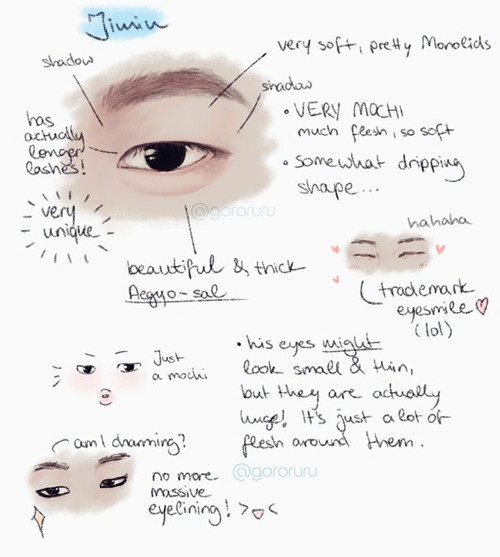 Jimin
very soft, pretty Monolids
shadow
shadow
has
actually
longer
lashes!
• VERY MOCHI
much flesh, so soft
• somewhat dripping
shape...
very
unique
@gororuru
hahaha
beautiful & thick
Aegyo-sal
trademark
eyesmile
(lol)
Just
a mochi
• his eyes might
look small & thin,
but they are actually
huge! It's just a lot of
flesh around them.
am I charming?
no more
massive
eyelining! >▽<
@gororuru